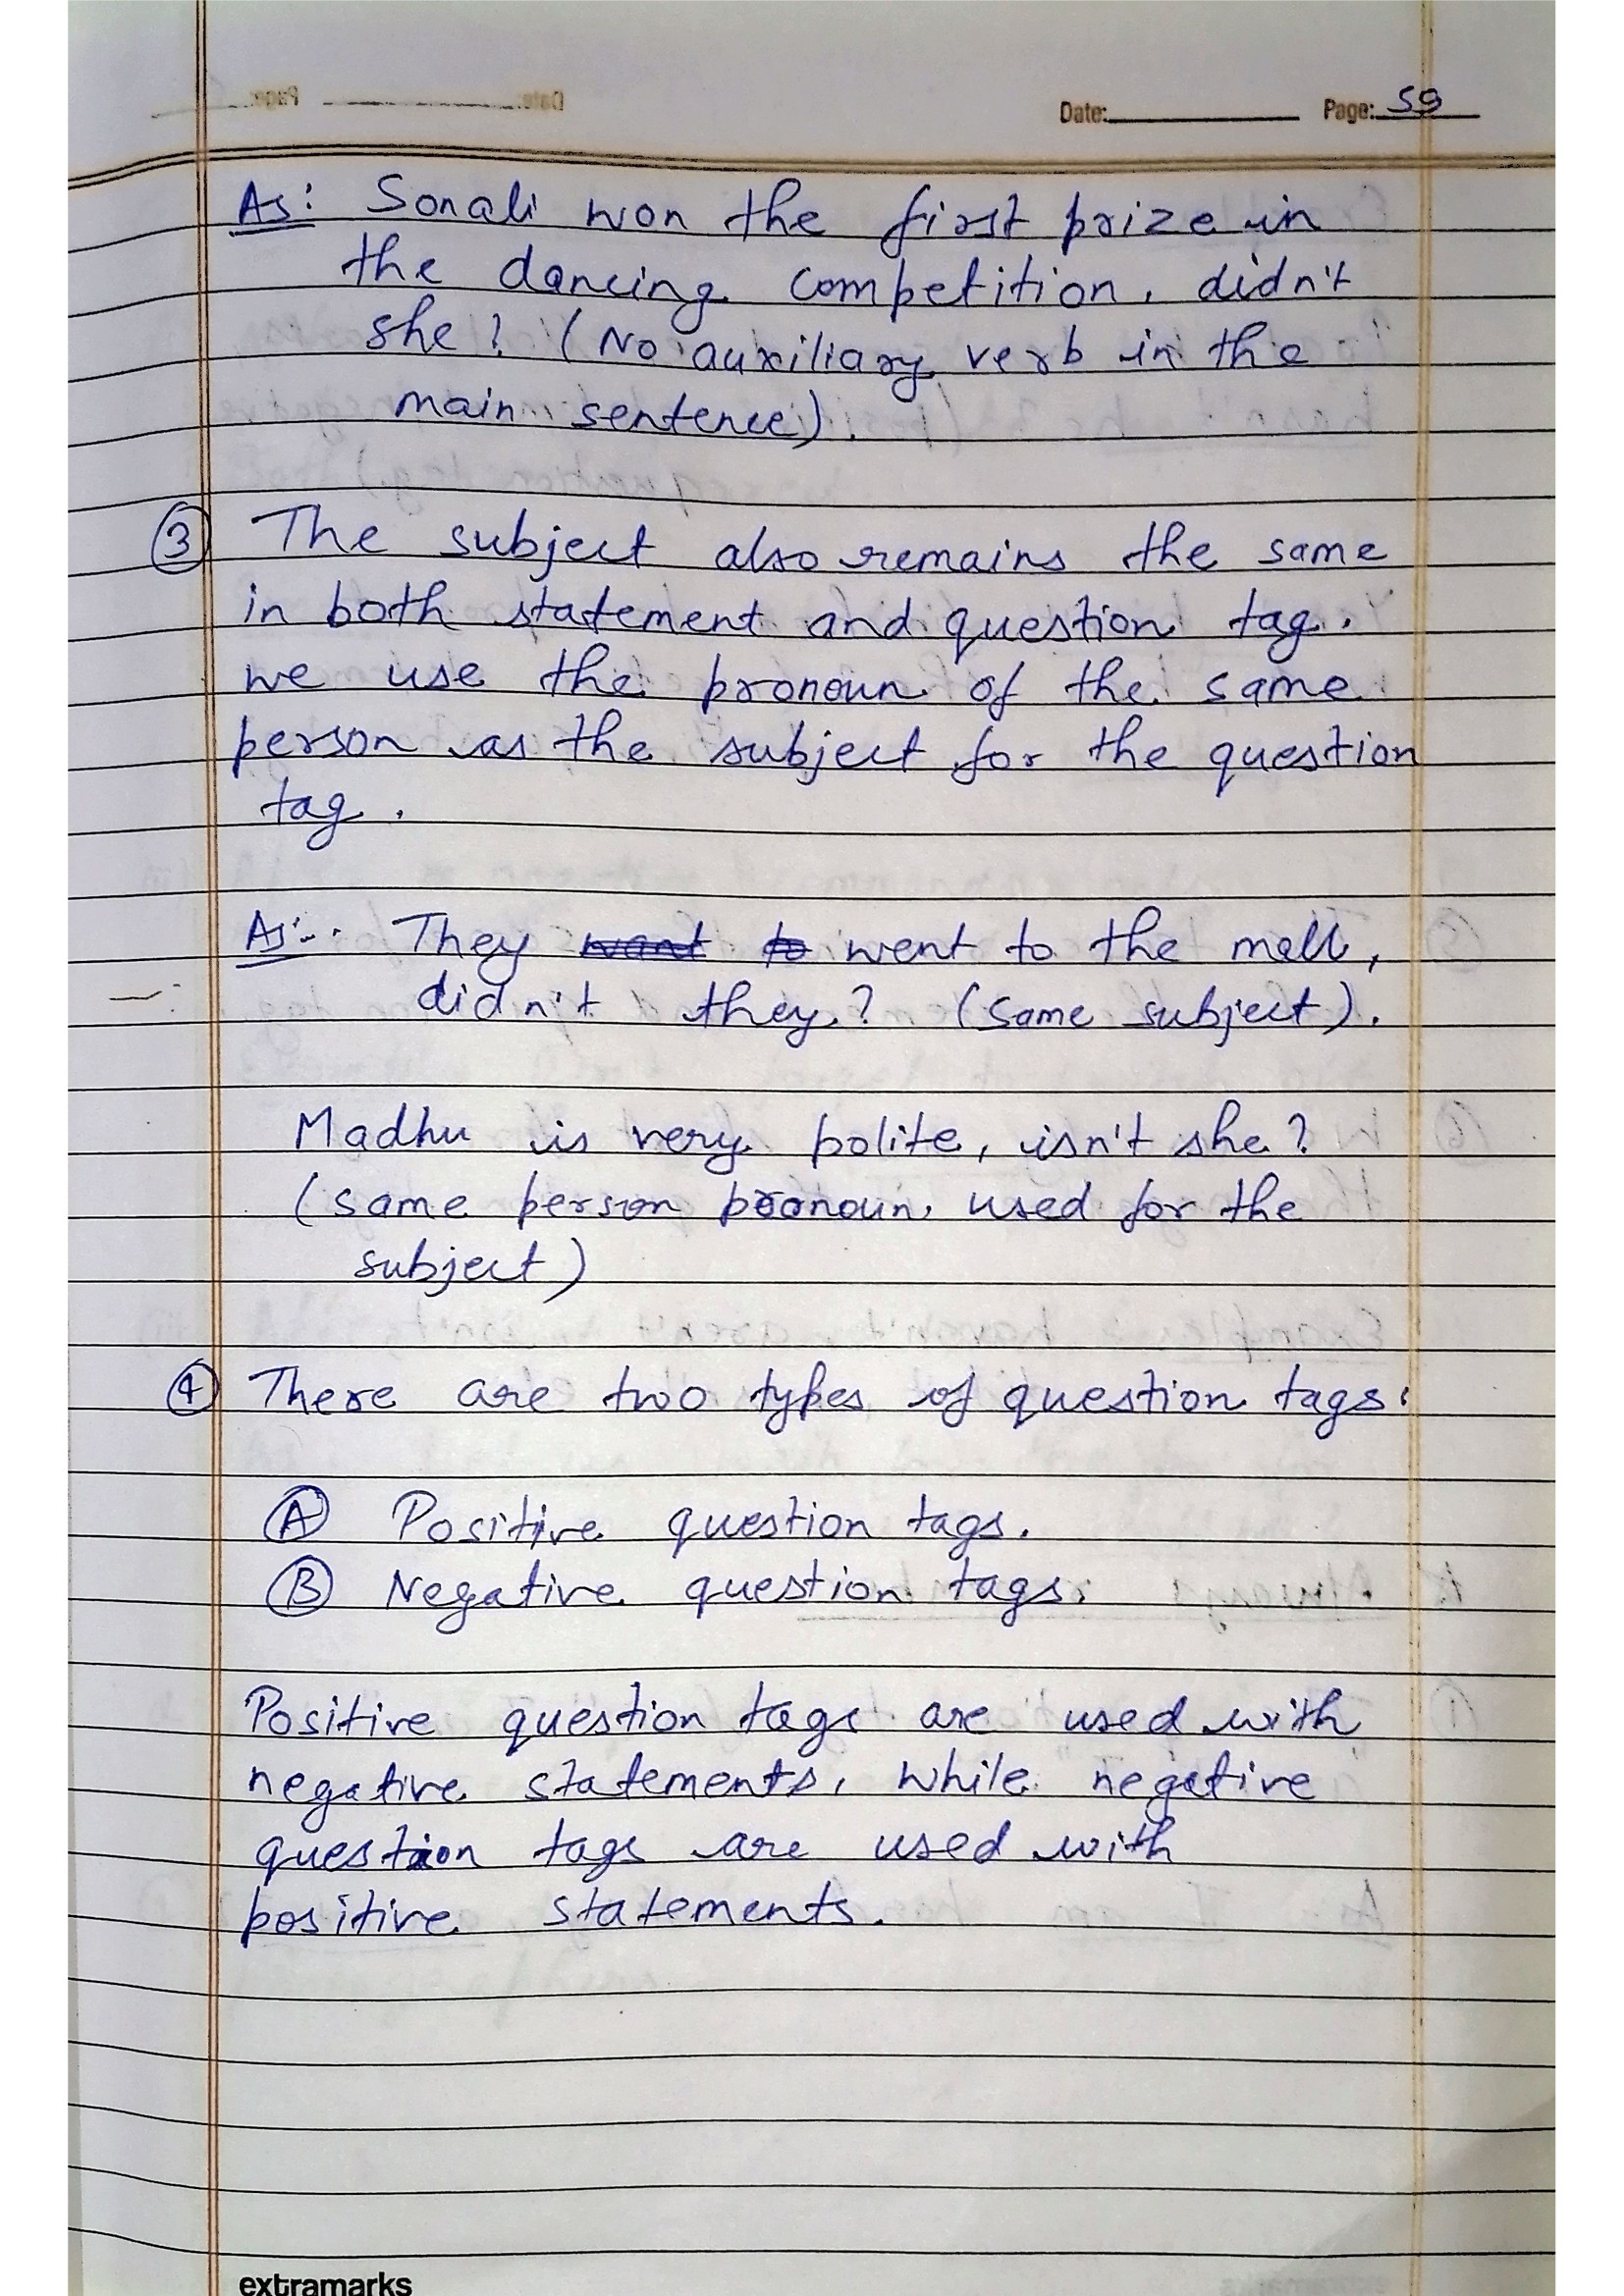 Date: Page: 59
As: Sonali won the first prize in
the dancing competition, didn't
she? (No auxiliary verb in the
main sentence).
③ The subject also remains the same
in both statement and question tag.
we use the pronoun of the same
person as the subject for the question
tag.
As:- They want to went to the mall,
didn't they? (Same subject).
Madhu is very polite, isn't she?
(same person pronoun used for the
subject)
④ There are two types of question tags:
Ⓐ Positive question tags.
Ⓑ Negative question tags.
Positive question tags are used with
negative statements, while negative
question tags are used with
positive statements.
extramarks